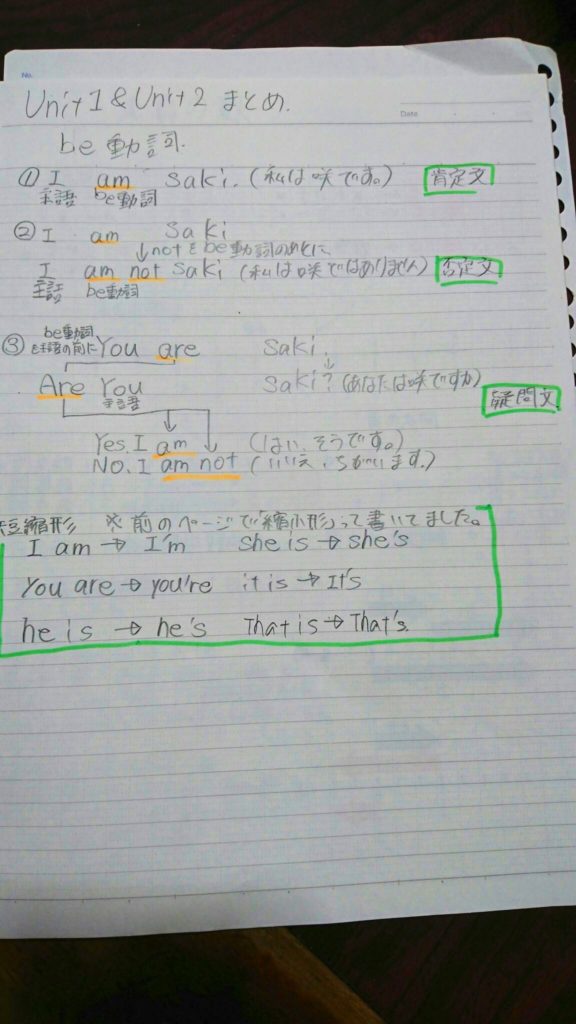 No.
Unit1 & Unit2 まとめ.
Date
be動詞.
① I am saki. (私は咲です。) 肯定文
主語 be動詞
② I am saki
↓notをbe動詞のあとに、
I am not saki (私は咲ではありません) 否定文
主語 be動詞
be動詞
③ を主語の前に You are saki.
Are You saki? (あなたは咲ですか) 疑問文
主語
Yes, I am (はい、そうです。)
No. I am not (いいえ、ちがいます。)
短縮形 ※前のページで「縮小形」って書いてました。
I am → I'm she is → she's
You are → you're it is → It's
he is → he's That is → That's.